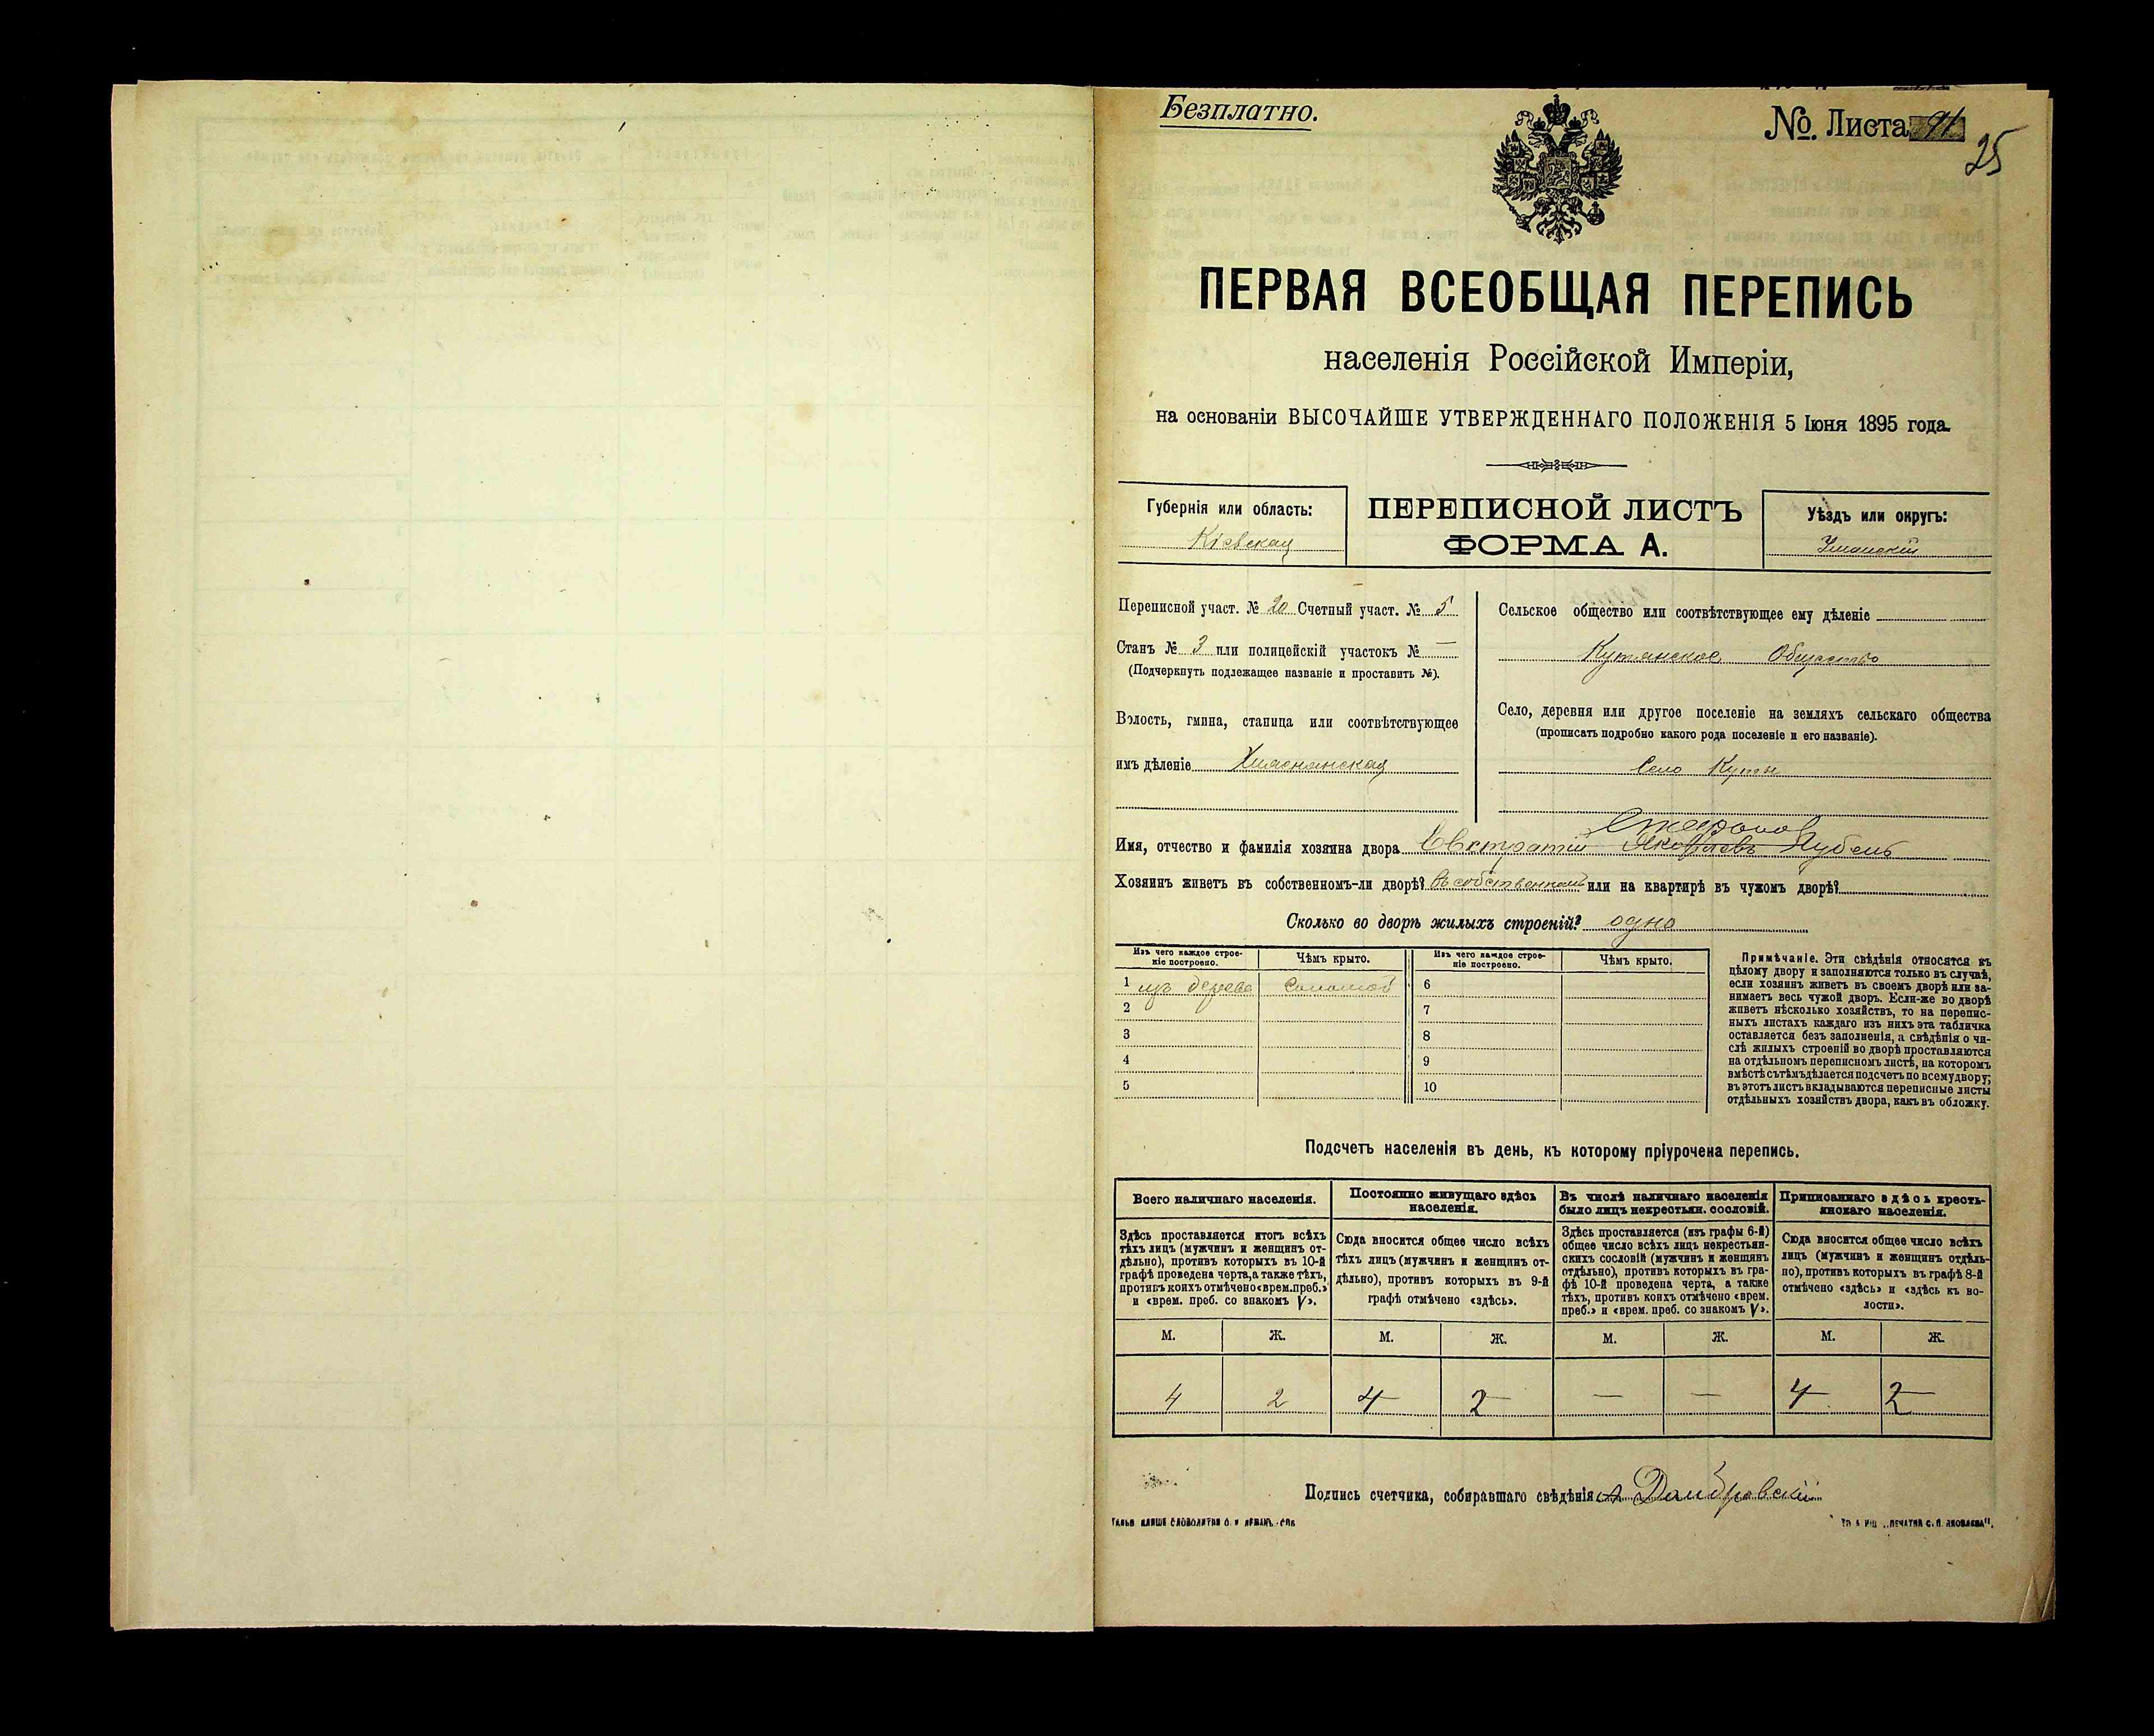 Безплатно.
№. Листа 91
25
ПЕРВАЯ ВСЕОБЩАЯ ПЕРЕПИСЬ
населенія Россійской Имперіи,
на основаніи ВЫСОЧАЙШЕ УТВЕРЖДЕННАГО ПОЛОЖЕНІЯ 5 Іюня 1895 года.
Губернія или область:
Кіевская
ПЕРЕПИСНОЙ ЛИСТЪ
ФОРМА А.
Уѣздъ или округъ:
Уманскій
Переписной участ. № 20 Счетный участ. № 5
Станъ № 3 или полицейскій участокъ № —
(Подчеркнуть подлежащее названіе и проставить №).
Волость, гмина, станица или соотвѣтствующее
имъ дѣленіе
Сельское общество или соотвѣтствующее ему дѣленіе
Кутянское Общество
Село, деревня или другое поселеніе на земляхъ сельскаго общества
(прописать подробно какого рода поселеніе и его названіе).
Село Куты
Имя, отчество и фамилія хозяина двора Евстратій Яковлевъ
Хозяинъ живетъ въ собственномъ-ли дворѣ? Въ собственномъ или на квартирѣ въ чужомъ дворѣ?
Сколько во дворѣ жилыхъ строеній? одно
Изъ чего каждое строе-
ніе построено.
Чѣмъ крыто.
1 изъ дерева Соломой
2
3
4
5
Изъ чего каждое строе-
ніе построено.
Чѣмъ крыто.
6
7
8
9
10
Примѣчаніе. Эти свѣдѣнія относятся къ
цѣлому двору и заполняются только въ случаѣ,
если хозяинъ живетъ въ своемъ дворѣ или за-
нимаетъ весь чужой дворъ. Если-же во дворѣ
живетъ нѣсколько хозяйствъ, то на перепис-
ныхъ листахъ каждаго изъ нихъ эта табличка
оставляется безъ заполненія, а свѣдѣнія о чи-
слѣ жилыхъ строеній во дворѣ проставляются
на отдѣльномъ переписномъ листѣ, на которомъ
вмѣстѣ съ тѣмъ дѣлается подсчетъ по всему двору;
въ этотъ листъ вкладываются переписные листы
отдѣльныхъ хозяйствъ двора, какъ въ обложку.
Подсчетъ населенія въ день, къ которому пріурочена перепись.
Всего наличнаго населенія.
Здѣсь проставляется итогъ всѣхъ
тѣхъ лицъ (мужчинъ и женщинъ от-
дѣльно), противъ которыхъ въ 10-й
графѣ проведена черта, а также тѣхъ,
противъ коихъ отмѣчено «врем. преб.»
и «врем. преб. со знакомъ V».
М. Ж.
4 2
Постоянно живущаго здѣсь
населенія.
Сюда вносится общее число всѣхъ
тѣхъ лицъ (мужчинъ и женщинъ от-
дѣльно), противъ которыхъ въ 9-й
графѣ отмѣчено «здѣсь».
М. Ж.
4 2
Въ числѣ наличнаго населенія
было лицъ некрестьян. сословій.
Здѣсь проставляется (изъ графы 6-й)
общее число всѣхъ лицъ некрестьян-
скихъ сословій (мужчинъ и женщинъ
отдѣльно), противъ которыхъ въ гра-
фѣ 10-й проведена черта, а также
тѣхъ, противъ коихъ отмѣчено «врем.
преб.» и «врем. преб. со знакомъ V».
М. Ж.
— —
Приписаннаго здѣсь кресть-
янскаго населенія.
Сюда вносится общее число всѣхъ
лицъ (мужчинъ и женщинъ отдѣль-
но), противъ которыхъ въ графѣ 8-й
отмѣчено «здѣсь» и «здѣсь къ во-
лости».
М. Ж.
4 2
Подпись счетчика, собиравшаго свѣдѣнія А Домбровскій